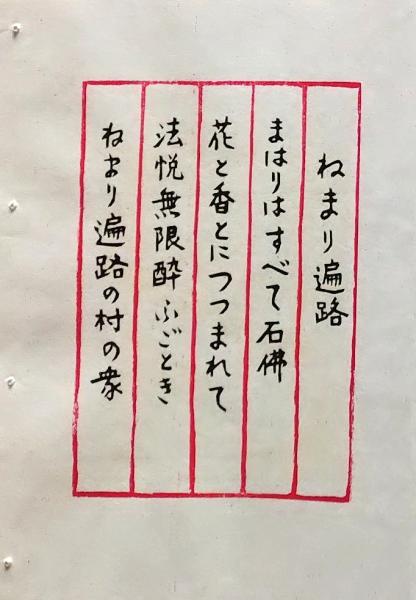 ねまり遍路
まはりはすべて石佛
花と香とにつつまれて
法悦無限酔ふごとき
ねまり遍路の村の衆